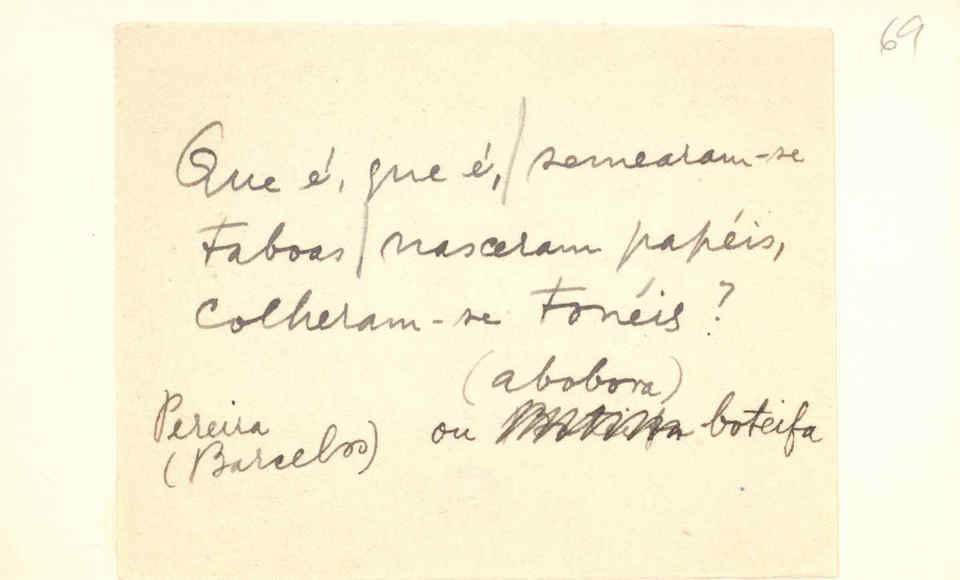 69
Que é, que é, / semearam-se
Taboas / nasceram papéis,
colheram-se tonéis?
(abobora)
ou boteifa
Pereira
(Barcelos)